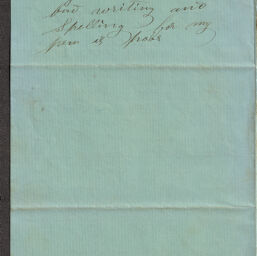 bad writing and
spelling for my
pen is poor